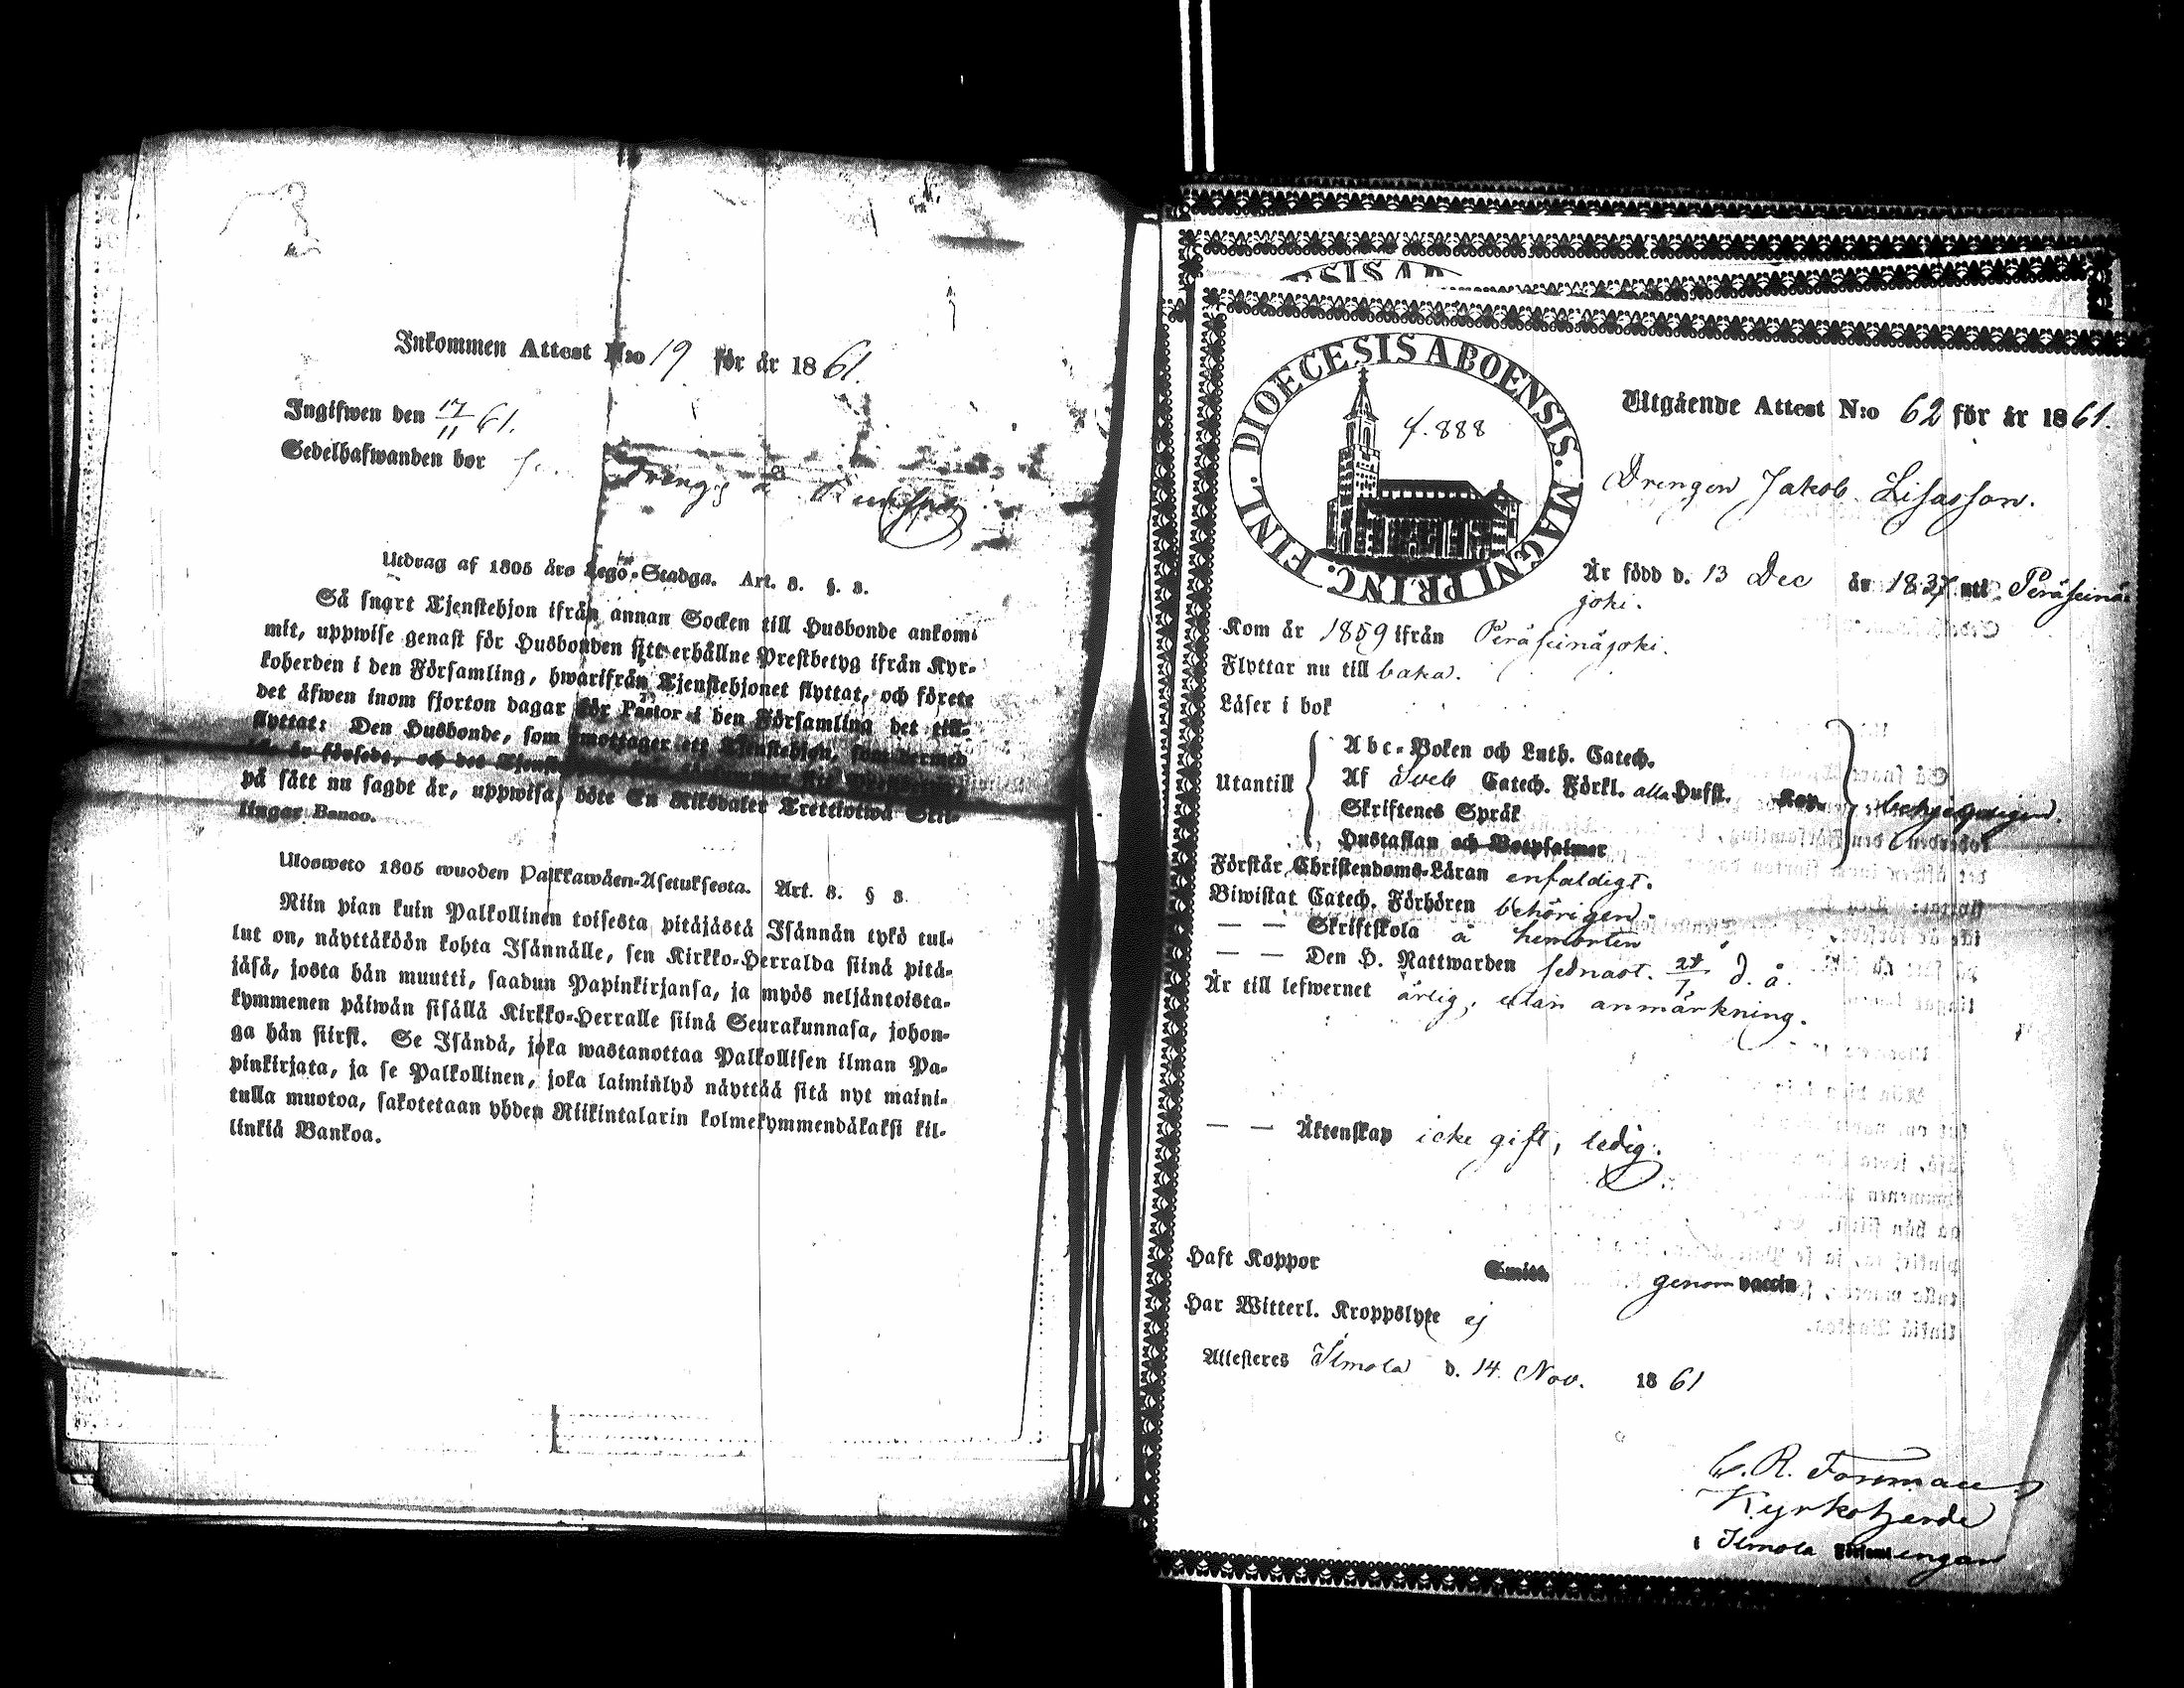 Inkommen Attest N:o 19 för år 1861.
Ingifwen den 17/11 61.
Sedelhafwanden bor
Utdrag af 1805 års Lego-Stadga. Art. 8. §. 8.
Så snart Tjenstehjon ifrån annan Socken till Husbonde ankom-
mit, uppwise genast för Husbonden sitt erhållne Prestbetyg ifrån Kyr-
koherden i den Församling, hwarifrån Tjenstehjonet flyttat, och förete
det äfwen inom fjorton dagar för Pastor i den Församling det till-
flyttat: Den Husbonde, som emottager ett Tjenstehjon, som dermed
är försedt, och det
på sätt nu sagdt är, uppwisa, böte En Riksdaler Trettiotwå Skil-
lingar Banco.
Ulosweto 1805 wuoden Palkkawäen-Asetuksesta. Art. 8. § 8.
Niin pian kuin Palkollinen toisesta pitäjästä Isännän tykö tul-
lut on, näyttäköön kohta Isännälle, sen Kirkko-Herralda siinä pitä-
jäsä, josta hän muutti, saadun Papinkirjansa, ja myös neljäntoista-
kymmenen päiwän sisällä Kirkko-Herralle siinä Seurakunnasa, johon-
ga hän siirsi. Se Isändä, joka wastanottaa Palkollisen ilman Pa-
pinkirjata, ja se Palkollinen, joka laiminlyö näyttää sitä nyt maini-
tulla muotoa, sakotetaan yhden Riikintalarin kolmekymmendäkaksi kil-
linkiä Bankoa.
ESIS AB
DIOECESIS ABOENSIS. MAGNI PRINC. FINL.
f. 888
Utgående Attest N:o 62 för år 1861.
Drengen Jakob Lisasson.
Är född d. 13 Dec år 1837 uti Peräseinä
joki.
Kom år 1859 ifrån Peräseinäjoki.
Flyttar nu till baka.
Läser i bok
Abc-Boken och Luth. Catech.
Utantill Af Sveb Catech. Förkl. alla Hufst. Kap.
Skriftenes Språk
Hustaflan och Botpsalmer
Förstår Christendoms-Läran enfaldigt.
Biwistat Catech. Förhören behörigen.
— — Skriftskola å hemorten
— — Den H. Nattwarden sednast. d. å.
Är till lefwernet ärlig, utan anmärkning.
— — Äktenskap icke gift, ledig.
Haft Koppor Smitt genom vaccin
Har Witterl. Kroppslyte ej
Attesteres Ilmola d. 14 Nov. 1861
C. R. Forsman
Kyrkoherde
i Ilmola Församlingar